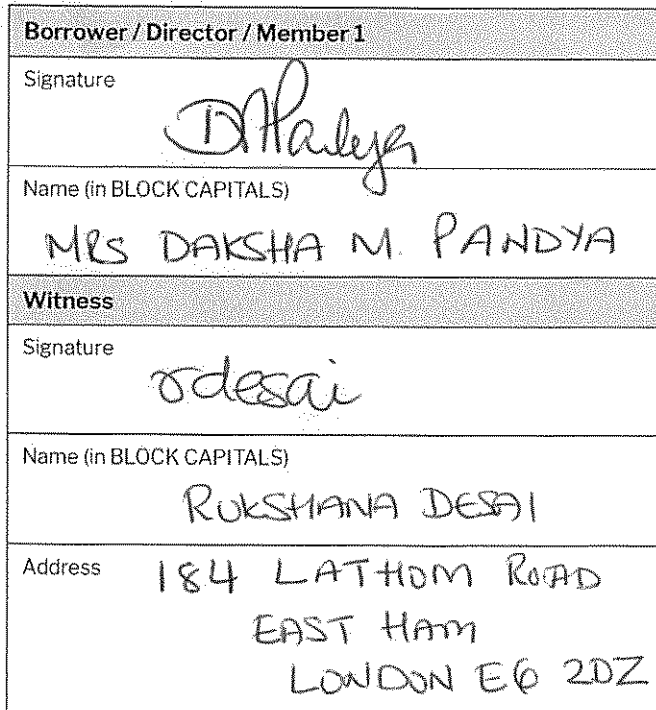 Borrower / Director / Member 1
Signature
DMPandya
Name (in BLOCK CAPITALS)
MRS DAKSHA M. PANDYA
Witness
Signature
rdesai
Name (in BLOCK CAPITALS)
RUKSHANA DESAI
Address 184 LATHOM ROAD
EAST HAM
LONDON E6 2DZ